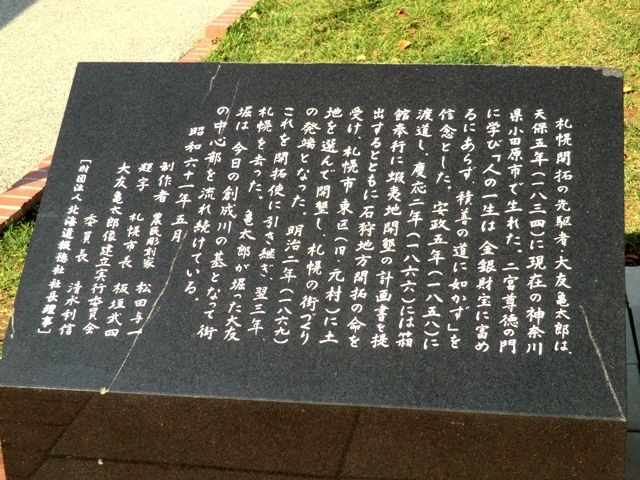 札幌開拓の先駆者・大友亀太郎は、
天保五年(一八三四)に現在の神奈川
県小田原市で生れた。二宮尊徳の門
に学び「人の一生は 金銀財宝に富め
るにあらず、積善の道に如かず」を
信念とした。安政五年(一八五八)に
渡道し、慶応二年(一八六六)には箱
館奉行に蝦夷地開墾の計画書を提
出するとともに石狩地方開拓の命を
受け、札幌市東区(旧・元村)に土
地を選んで開墾し、札幌の街づくり
の発端となった。明治二年(一八六九)
これを開拓使に引き継ぎ、翌三年、
札幌を去った。 亀太郎が堀った大友
堀は、今日の創成川の基となって街
の中心部を流れ続けている。
昭和六十一年五月
制作者 農民彫刻家 松田与一
題字 札幌市長 板垣武四
大友亀太郎像建立実行委員会
委員長 清水利信
[財団法人 北海道報徳社 社長理事]